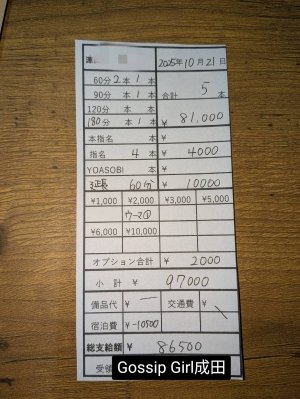 2025年10月21日
60分 2本 1本
90分 1本 合計 5本
120分 本
180分 本 1本 ¥ 81,000
本指名 本 ¥
指名 4本 ¥ 4000
YOASOBI 本 ¥
延長 60分 ¥ 10000
¥1,000 ¥2,000 ¥3,000 ¥5,000
¥6,000 ¥10,000
オプション合計 ¥ 2000
小計 ¥ 97000
備品代 ¥ 交通費 ¥
宿泊費 ¥-10500
総支給額 ¥ 86500
受領
Gossip Girl成田